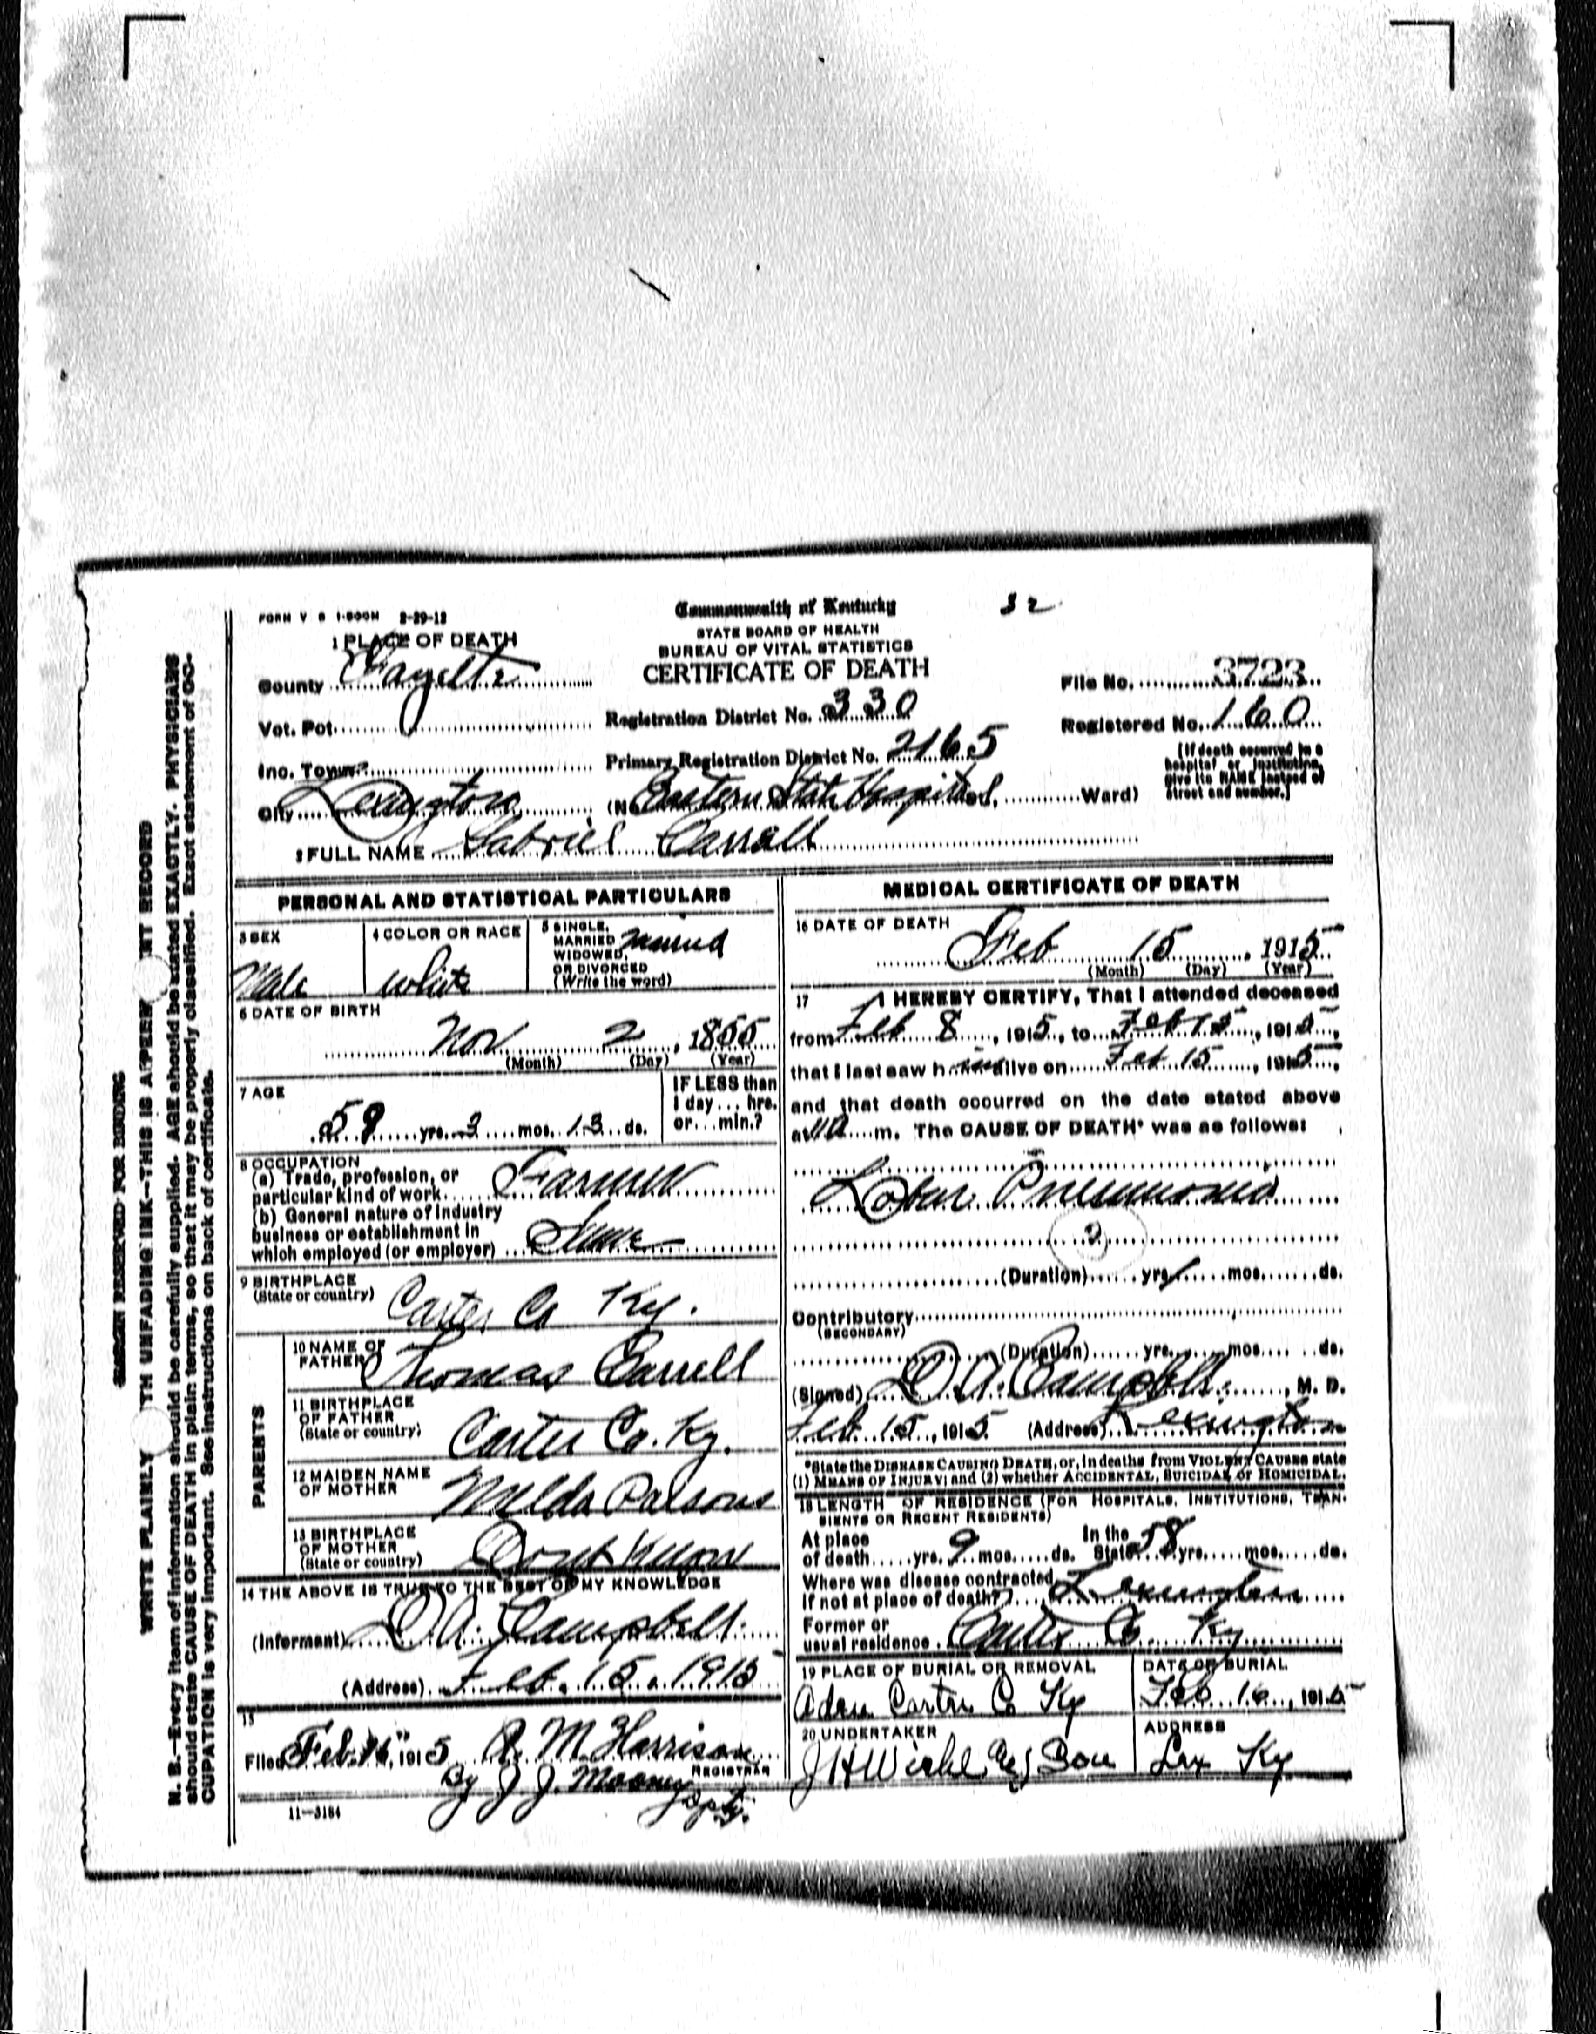 32
FORM V S 1-500M 2-29-12
Commonwealth of Kentucky
STATE BOARD OF HEALTH
BUREAU OF VITAL STATISTICS
CERTIFICATE OF DEATH
1 PLACE OF DEATH
County Fayette
Vot. Pct.
Inc. Town
City Lexington
Registration District No. 330
Primary Registration District No. 2165
(No. Eastern State Hospital St., Ward)
File No. 3723
Registered No. 160
(If death occurred in a hospital or institution, give its NAME instead of street and number.)
2 FULL NAME Gabriel Carroll
PERSONAL AND STATISTICAL PARTICULARS
3 SEX
Male
4 COLOR OR RACE
White
5 SINGLE,
MARRIED
WIDOWED,
OR DIVORCED
(Write the word)
Married
6 DATE OF BIRTH
Nov 2, 1855
(Month) (Day) (Year)
7 AGE
59 yrs. 3 mos. 13 ds.
IF LESS than
1 day ... hrs.
or ... min.?
8 OCCUPATION
(a) Trade, profession, or
particular kind of work Farmer
(b) General nature of industry
business or establishment in
which employed (or employer) Same
9 BIRTHPLACE
(State or country)
Carter Co Ky.
PARENTS
10 NAME OF
FATHER
Thomas Carrell
11 BIRTHPLACE
OF FATHER
(State or country)
Carter Co. Ky.
12 MAIDEN NAME
OF MOTHER
Melda Parsons
13 BIRTHPLACE
OF MOTHER
(State or country)
Dont Know
14 THE ABOVE IS TRUE TO THE BEST OF MY KNOWLEDGE
(Informant) D A. Campbell
(Address) Feb. 15. 1915
15
Filed Feb. 16, 1915 A. M. Harrison
REGISTRAR
By J J. Mooney
Dpty.
11-3184
MEDICAL CERTIFICATE OF DEATH
16 DATE OF DEATH
Feb 15, 1915
(Month) (Day) (Year)
17 I HEREBY CERTIFY, That I attended deceased
from Feb 8, 1915, to Feb 15, 1915,
that I last saw him alive on Feb 15, 1915,
and that death occurred on the date stated above
at 11 a m. The CAUSE OF DEATH* was as follows:
Lobar Pneumonia
2
(Duration) yrs. mos. ds.
Contributory
(SECONDARY)
(Duration) yrs. mos. ds.
(Signed) D A. Campbell, M. D.
Feb 15, 1915 (Address) Lexington
*State the DISEASE CAUSING DEATH, or, in deaths from VIOLENT CAUSES state
(1) MEANS OF INJURY; and (2) whether ACCIDENTAL, SUICIDAL or HOMICIDAL.
18 LENGTH OF RESIDENCE (FOR HOSPITALS, INSTITUTIONS, TRAN-
SIENTS OR RECENT RESIDENTS)
At place
of death yrs. 9 mos. ds.
In the
State 58 yrs. mos. ds.
Where was disease contracted,
If not at place of death? Lexington
Former or
usual residence Carter Co Ky
19 PLACE OF BURIAL OR REMOVAL
Carter Co Ky
DATE OF BURIAL
Feb 16, 1915
20 UNDERTAKER
J H Wiehl & Son
ADDRESS
Lex Ky
MARGIN RESERVED FOR BINDING
WRITE PLAINLY WITH UNFADING INK—THIS IS A PERMANENT RECORD
N. B.—Every item of information should be carefully supplied. AGE should be stated EXACTLY. PHYSICIANS
should state CAUSE OF DEATH in plain terms, so that it may be properly classified. Exact statement of OC-
CUPATION is very important. See instructions on back of certificate.